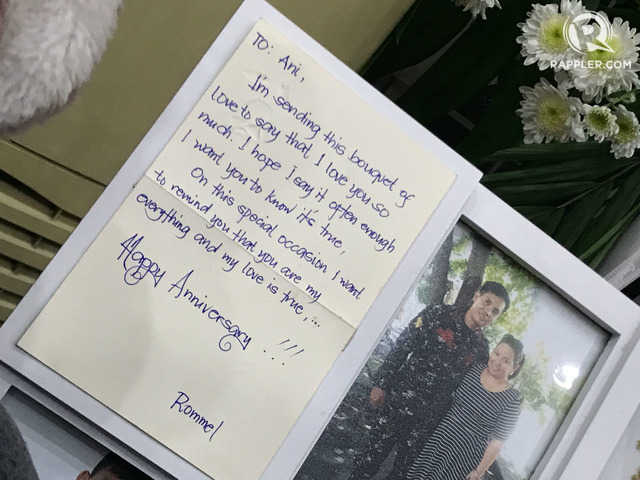 To: Ani,
I'm sending this bouquet of
love to say that I love you so
much. I hope I say it often enough
I want you to know it's true,
On this special occasion I want
to remind you that you are my
everything and my love is true,...
Happy Anniversary !!!
Rommel
R
RAPPLER.COM